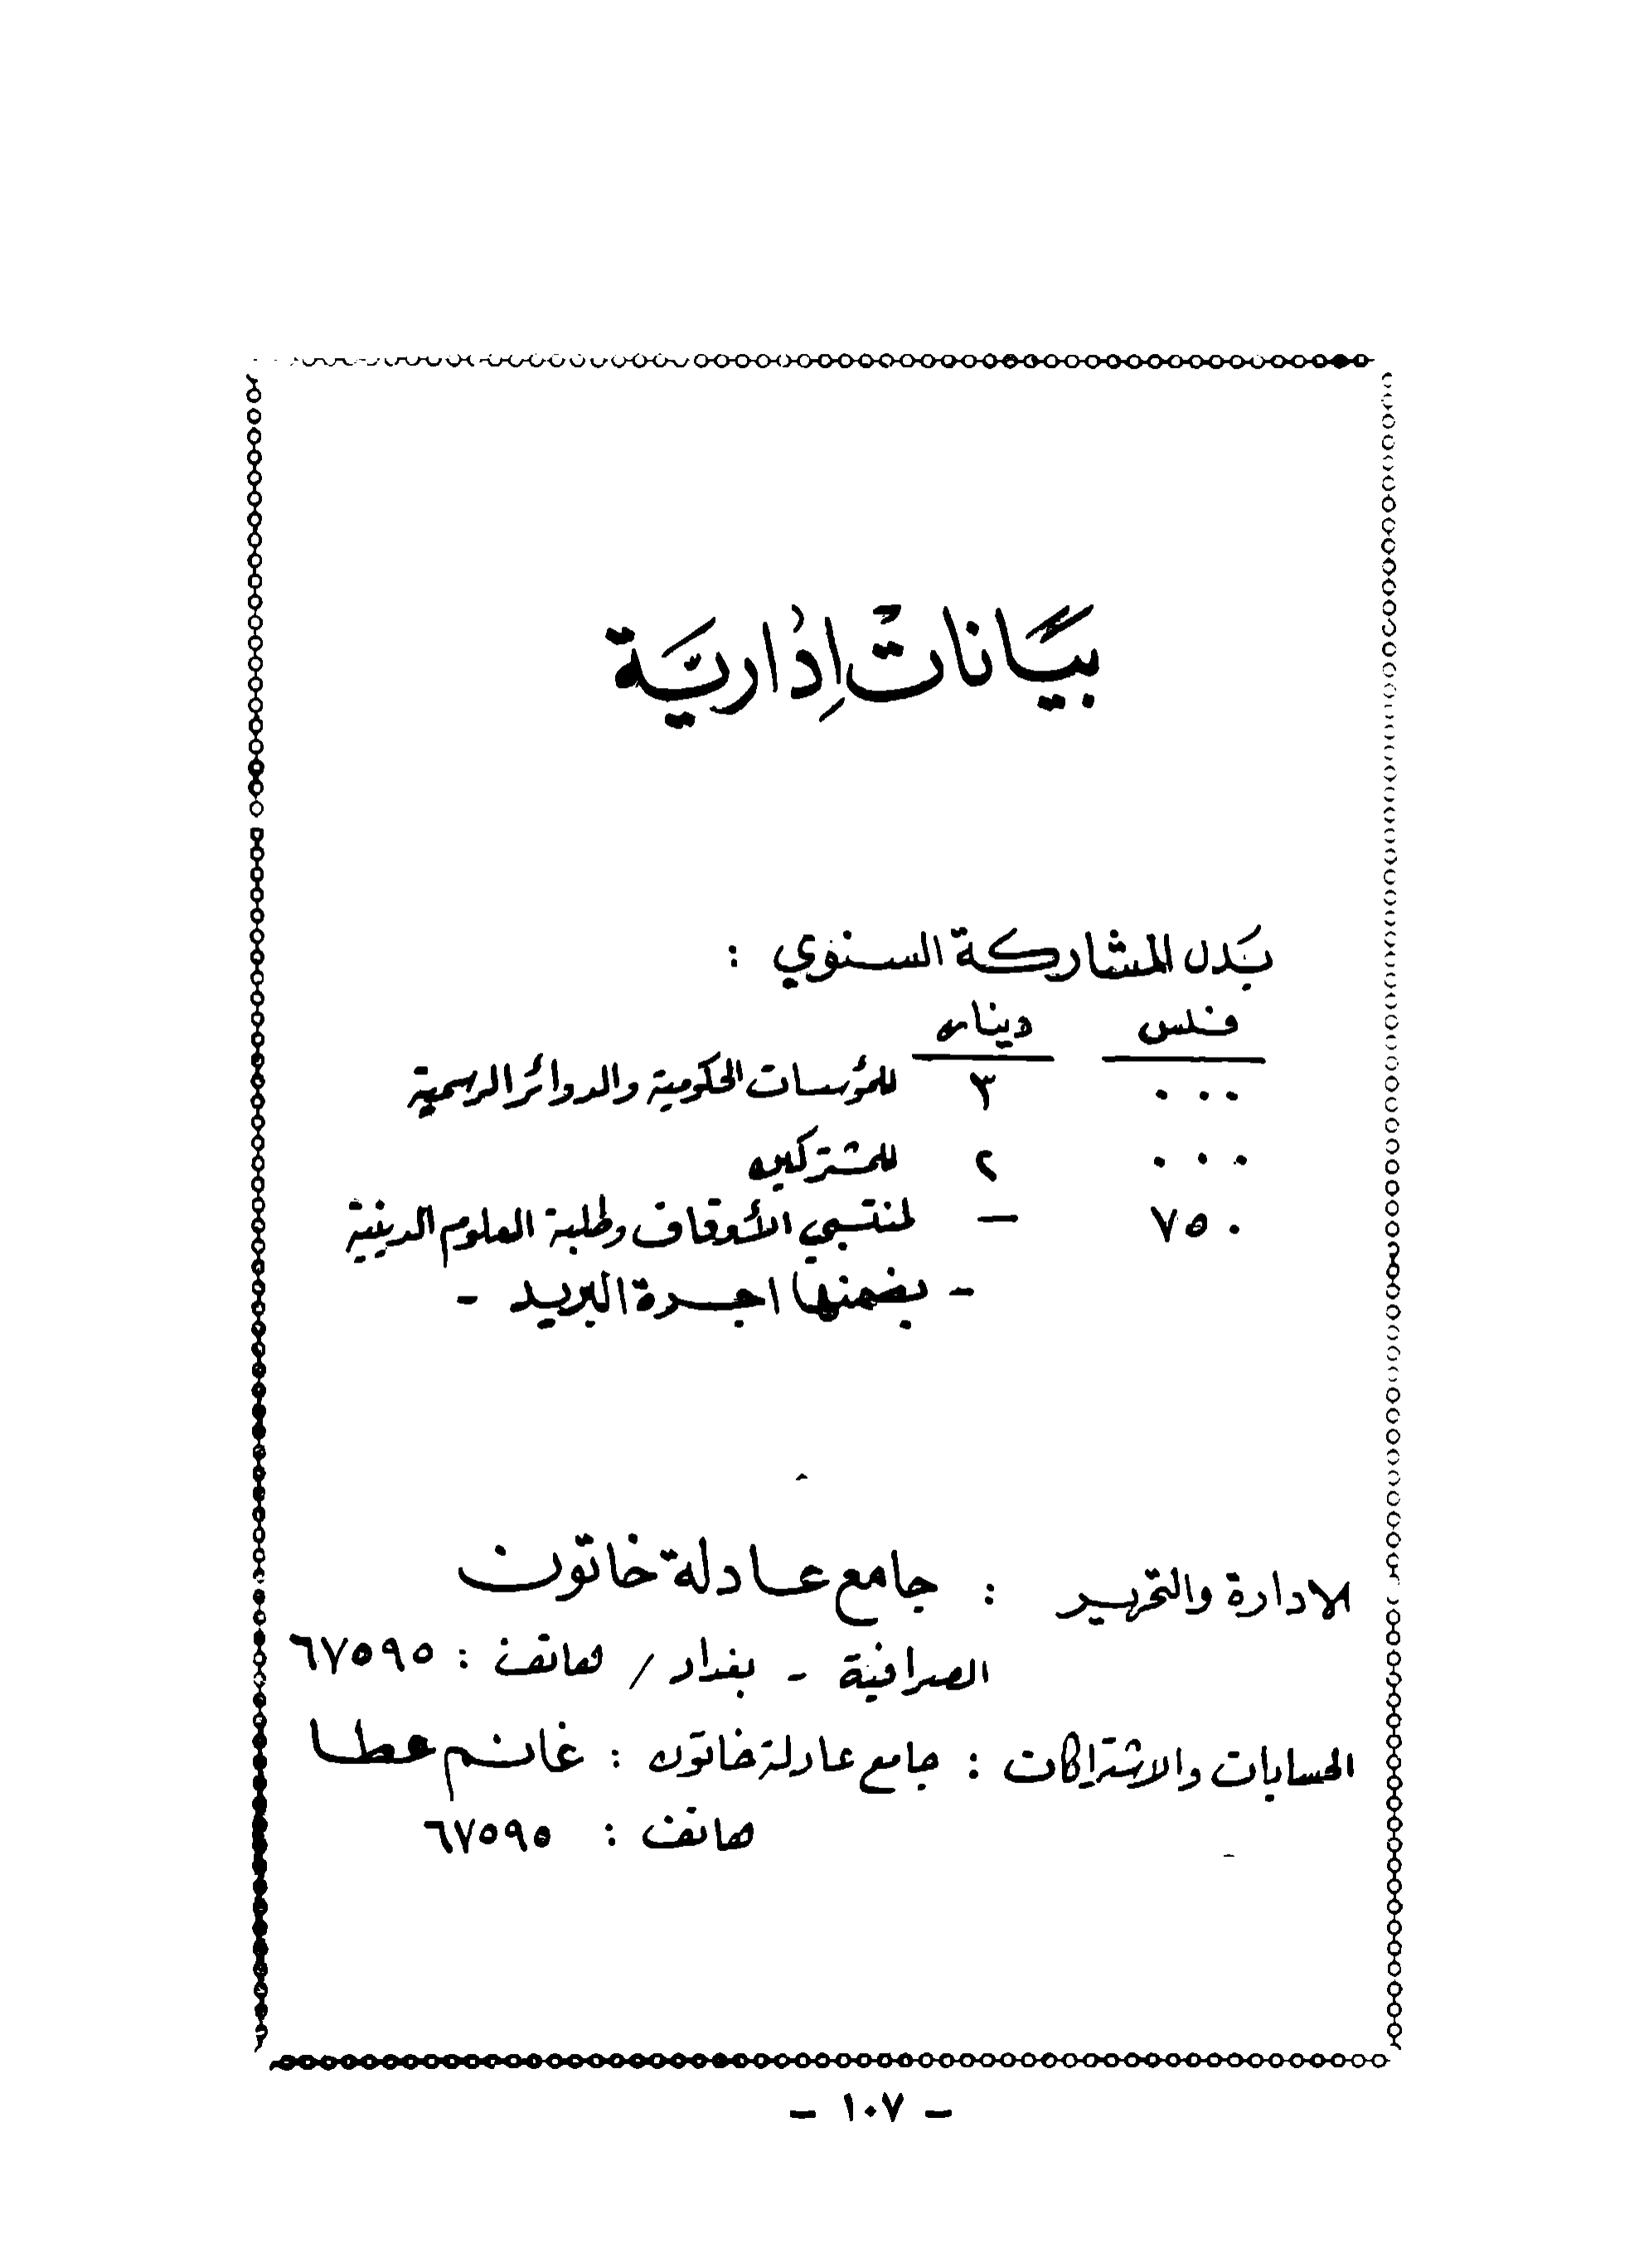 بيانات إدارية
بدل المشاركة السنوي :
فلس دينار
٠٠٠ ٣ للمؤسسات الحكومية والدوائر الرسمية
٠٠٠ ٢ للمشتركين
٧٥٠ — لمنتسبي الأوقاف وطلبة العلوم الدينية
- بضمنها اجرة البريد -
الادارة والتحرير : جامع عادلة خاتون
الصرافية - بغداد / هاتف : ٦٧٥٩٥
الحسابات والاشتراكات : جامع عادلة خاتون : غانم عطا
هاتف : ٦٧٥٩٥
- ١٠٧ -